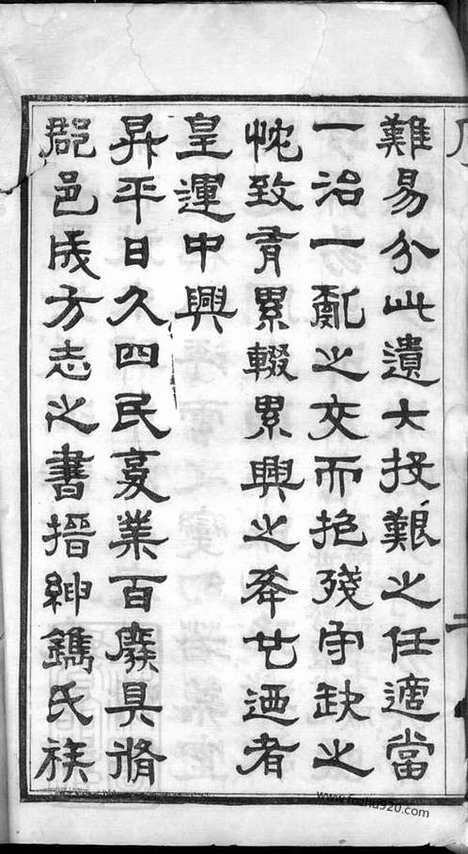 難易分此遺大投艱之任適當
一治一亂之交而抱殘守缺之
忱致有累輟累興之迺者
皇運中興
昇平日久四民复業百廢具脩
郡邑成方志之書搢紳鐫氏族